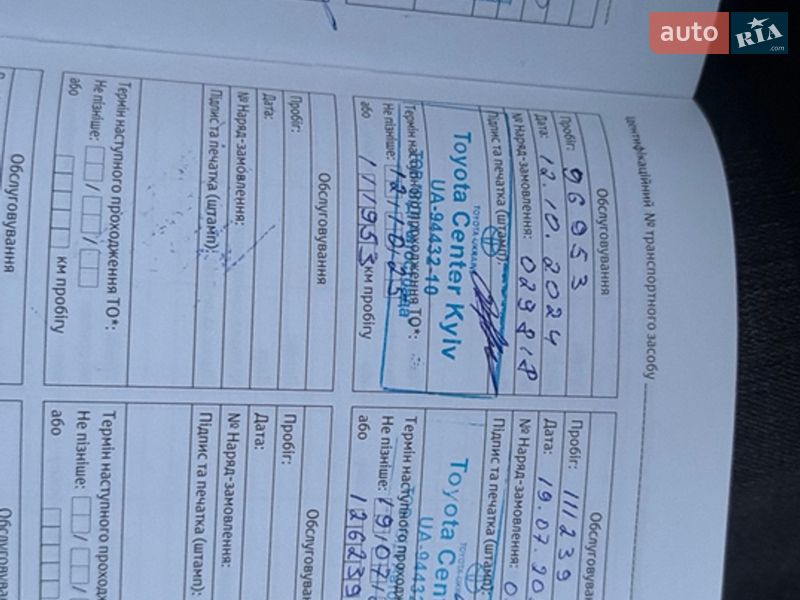 auto RIA .com
ідентифікаційний № транспортного засобу
Обслуговування
Пробіг: 96953
Дата: 12.10.2024
№ Наряд-замовлення: 029818
Підпис та печатка (штамп):
Toyota Center Kyiv
UA-94432-10
Термін наступного проходження ТО*:
Не пізніше: 12/10/25
або 111953 км пробігу
Обслуговування
Пробіг: 111239
Дата: 19.07.20
№ Наряд-замовлення: 0
Підпис та печатка (штамп):
Toyota Cent
UA-9443
Термін наступного проход
Не пізніше: 19/07/
або 126239
Обслуговування
Пробіг:
Дата:
№ Наряд-замовлення:
Підпис та печатка (штамп):
Термін наступного проходження ТО*:
Не пізніше:
або км пробігу
Обслуговування
Пробіг:
Дата:
№ Наряд-замовлення:
Підпис та печатка (штамп):
Термін наступного проход
Не пізніше:
або
Обслуговування
Обслуговуван